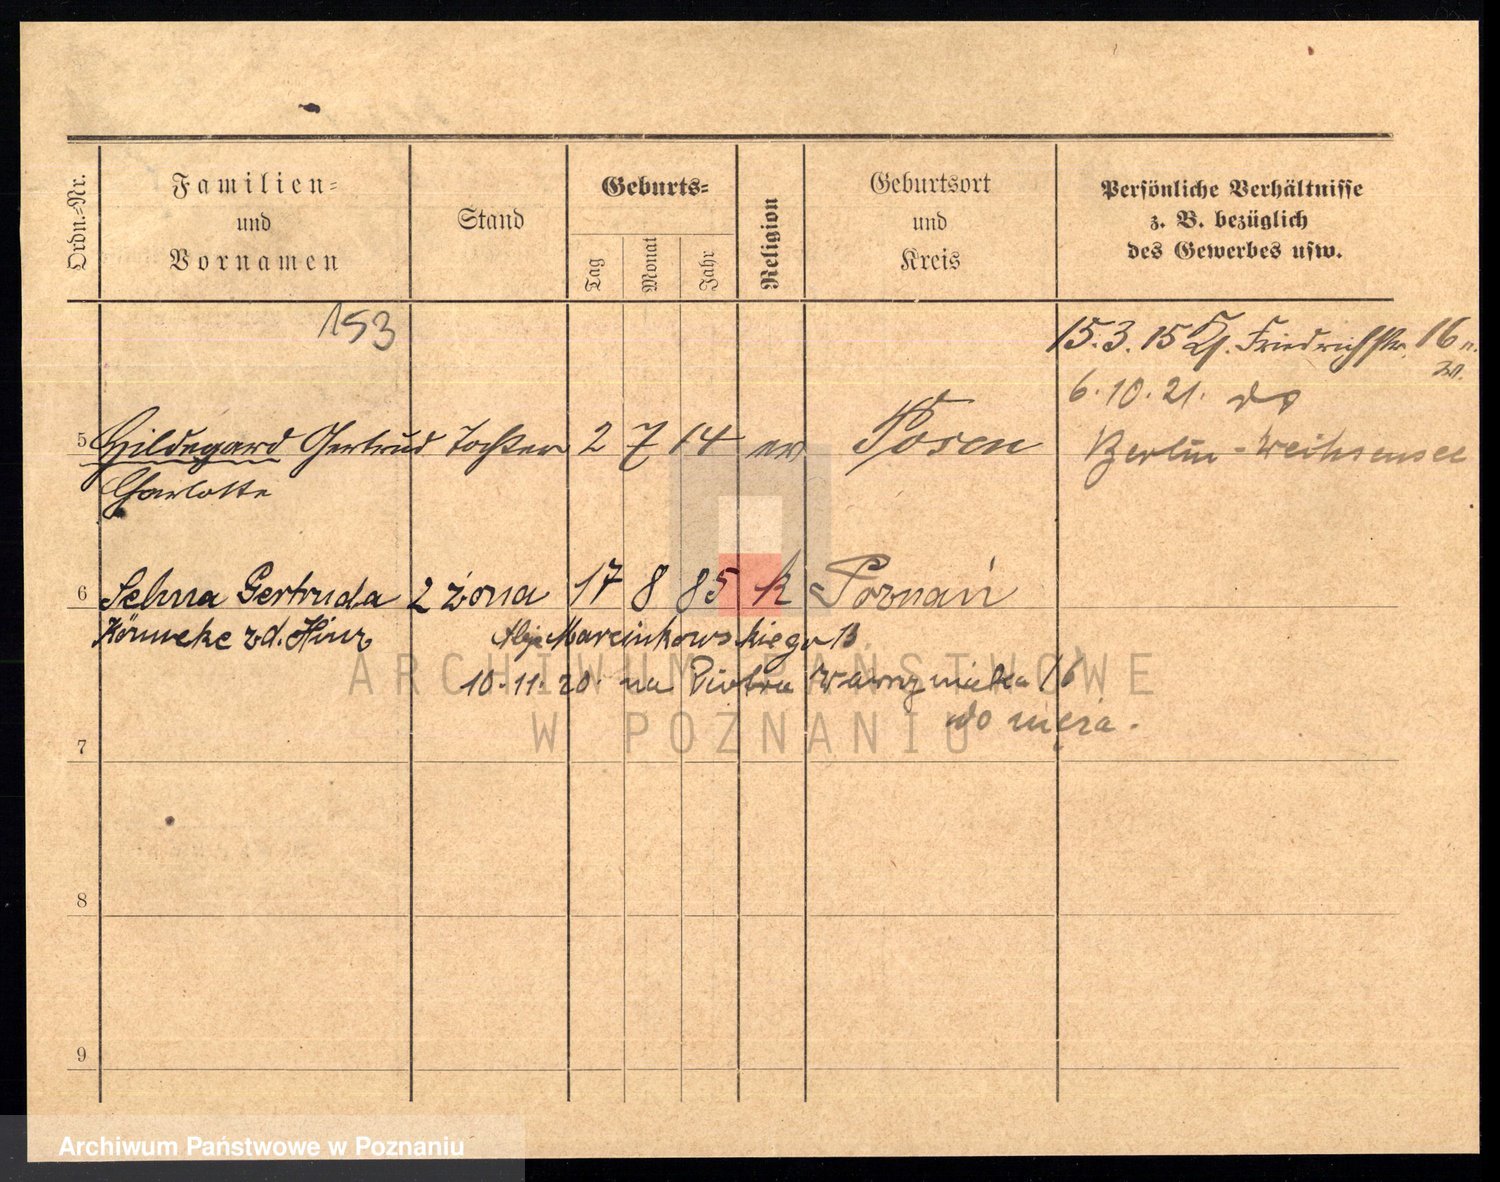 Ordn.-Nr.
Familien-
und
Vornamen
Stand
Geburts-
Tag
Monat
Jahr
Religion
Geburtsort
und
Kreis
Persönliche Verhältnisse
z. B. bezüglich
des Gewerbes usw.
153
15.3.15 Friedrichstr. 16
6.10.21.
5 Hildegard Gertrud Tochter 2 7 14 ev Posen Berlin-Weihsensee
Charlotte
6 Selma Gertruda 2 żona 17 8 85 k Poznań
Könneke zd. Hinz Aleje Marcinkowskiego 13
10.11.20. na Piotra Wawrzyniaka 16
do męża.
7
8
9
ARCHIWUM PAŃSTWOWE
W POZNANIU
Archiwum Państwowe w Poznaniu